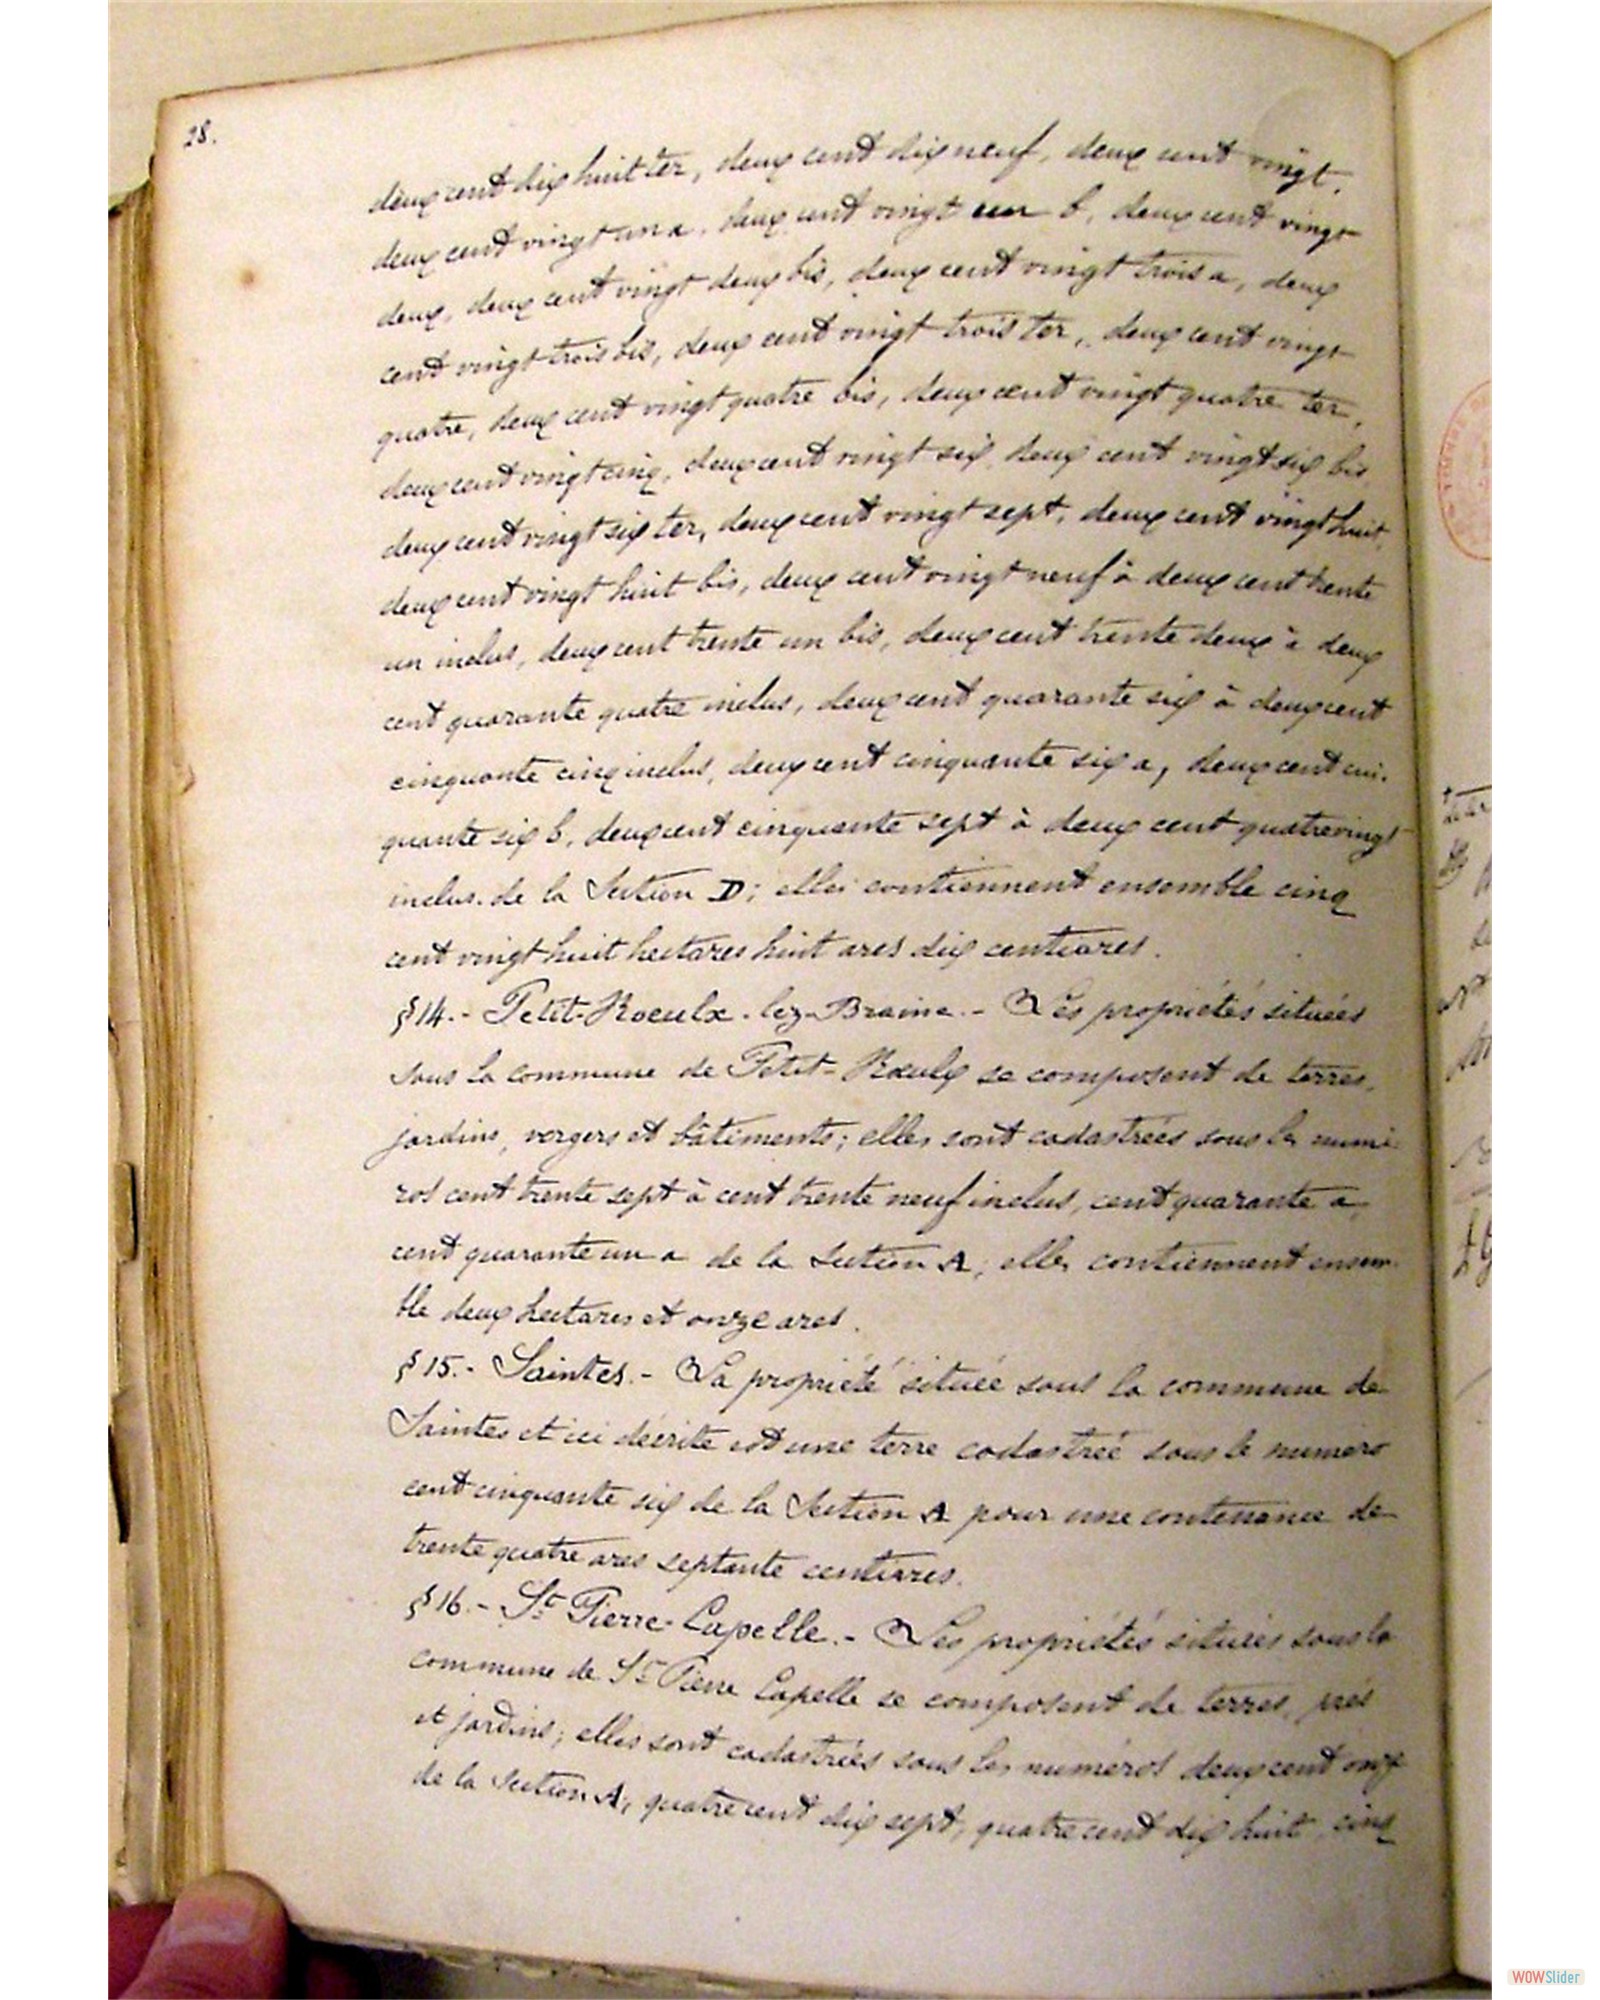 28.
deux cent dix huit ter, deux cent dix neuf, deux cent vingt,
deux cent vingt un a, deux cent vingt un b, deux cent vingt
deux, deux cent vingt deux bis, deux cent vingt trois a, deux
cent vingt trois bis, deux cent vingt trois ter, deux cent vingt
quatre, deux cent vingt quatre bis, deux cent vingt quatre ter,
deux cent vingt cinq, deux cent vingt six, deux cent vingt six bis,
deux cent vingt six ter, deux cent vingt sept, deux cent vingt huit,
deux cent vingt huit bis, deux cent vingt neuf à deux cent trente
un inclus, deux cent trente un bis, deux cent trente deux à deux
cent quarante quatre inclus, deux cent quarante six à deux cent
cinquante cinq inclus, deux cent cinquante six a, deux cent cin-
quante six b, deux cent cinquante sept à deux cent quatre vingt
inclus de la Section D; elles contiennent ensemble cinq
cent vingt huit hectares huit ares dix centiares.
§14.- Petit-Roeulx-lez-Braine.- Les propriétés situées
sous la commune de Petit-Roeulx se composent de terres,
jardins, vergers et bâtiments; elles sont cadastrées sous les numé-
ros cent trente sept à cent trente neuf inclus, cent quarante a,
cent quarante un a de la Section A; elles contiennent ensem-
ble deux hectares et onze ares.
§15.- Saintes.- La propriété située sous la commune de
Saintes et ici décrite est une terre cadastrée sous le numéro
cent cinquante six de la Section A pour une contenance de
trente quatre ares septante centiares.
§16.- St Pierre-Capelle.- Les propriétés situées sous la
commune de St Pierre Capelle se composent de terres, prés
et jardins; elles sont cadastrées sous les numéros deux cent onze
de la Section A, quatre cent dix sept, quatre cent dix huit, cinq
WOWSlider